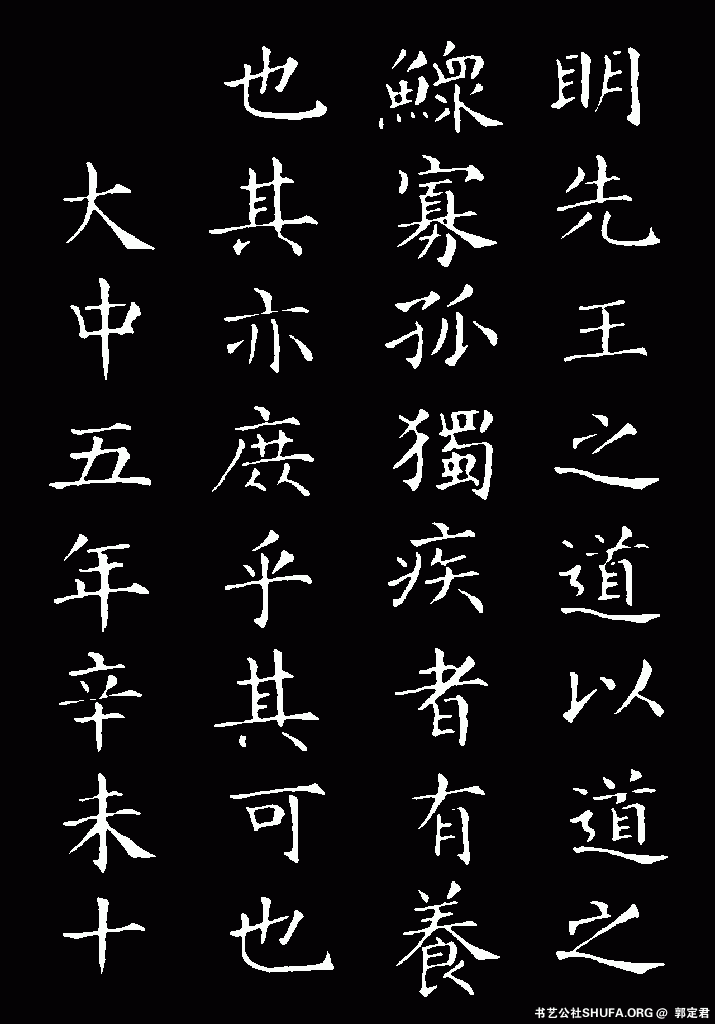 明先王之道以道之
鰥寡孤獨疾者有養
也其亦庶乎其可也
大中五年辛未十
书艺公社SHUFA.ORG @ 郭定君